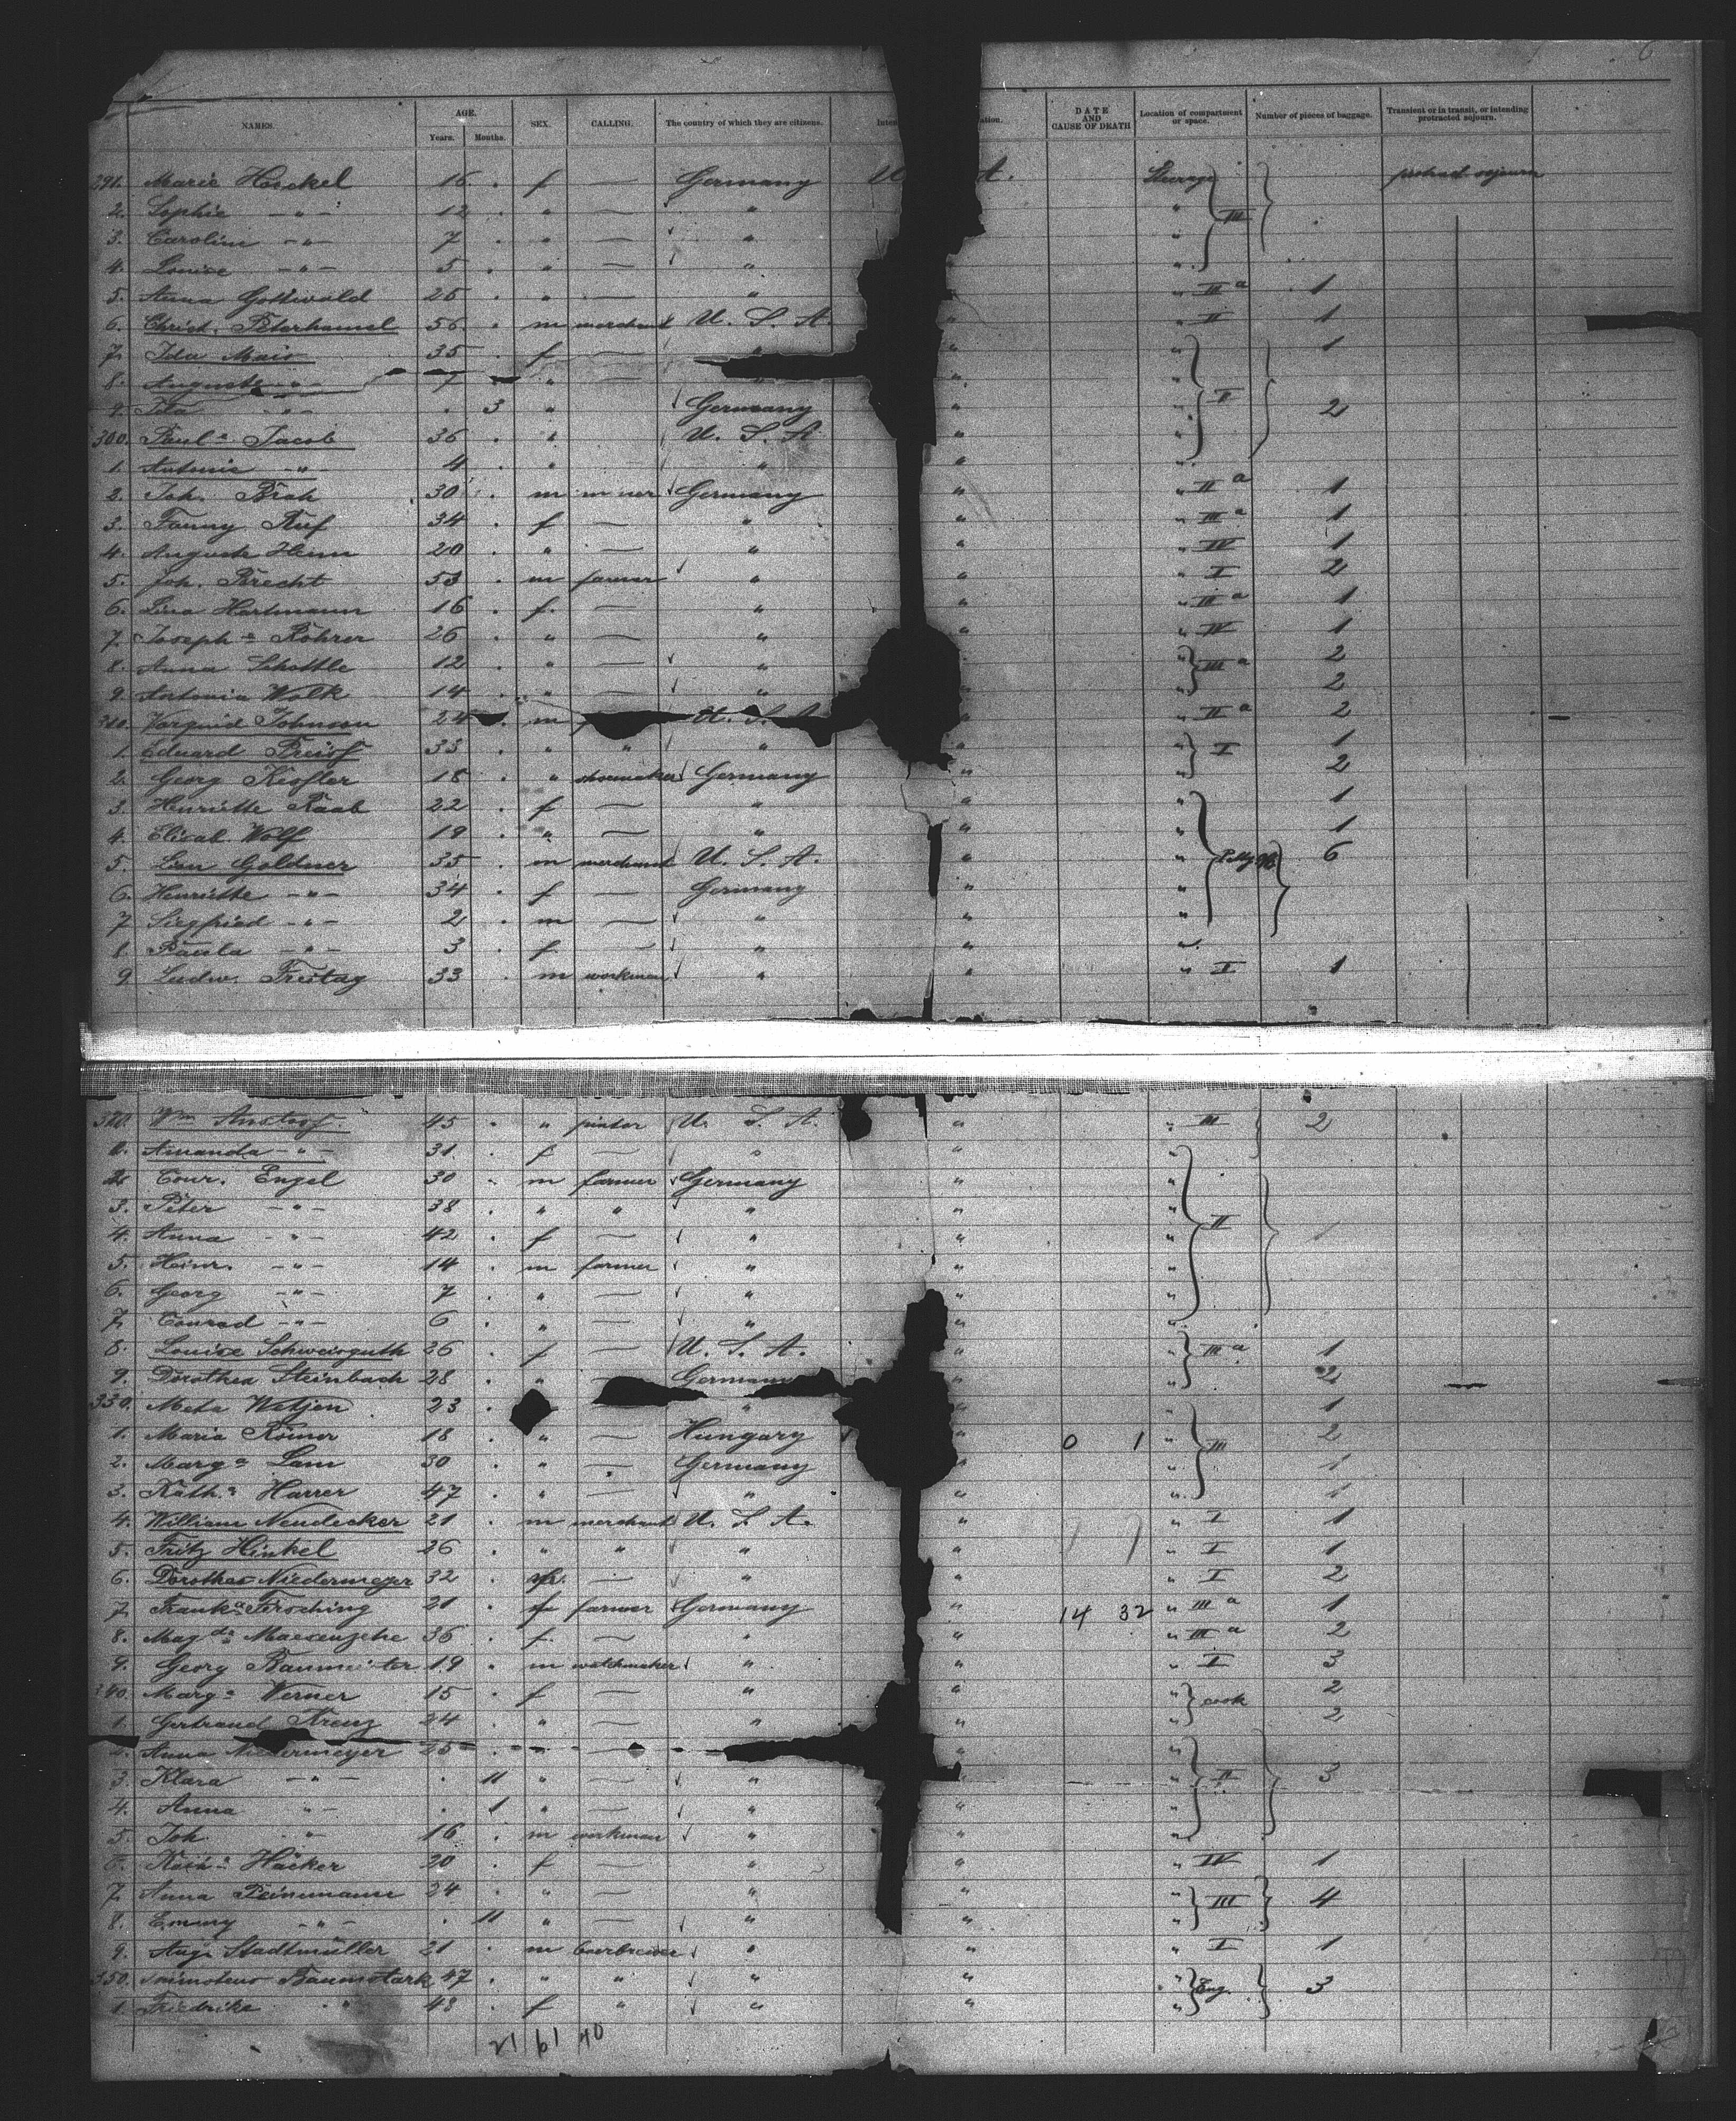 6
NAMES. AGE. Years. Months. SEX. CALLING. The country of which they are citizens. Inten ation. DATE AND CAUSE OF DEATH Location of compartment or space. Number of pieces of baggage. Transient or in transit, or intending protracted sojourn.
291. Marie Heckel 16 . f — Germany U A. Steerage protract sojourn
2. Sophie -"- 12 . " — " " III
3. Caroline -"- 7 . " — " "
4. Louise -"- 5 . " — " "
5. Anna Gottwald 25 . " — " " III a 1
6. Christ. Peterhansel 56 . m merchant U. S. A. " " II 1
7. Ida Mair 35 . f — " " 1
8. Auguste -"- 7 " — " " "
9. Ida -"- . 3 " Germany " " I 2
300. Paul a Jacob 36 . " U. S. A " "
1. Antonie -"- 4 . " " " "
2. Joh. Brok 30 . m miner Germany " " II a 1
3. Fanny Ruf 34 . f — " " " III a 1
4. Auguste Henn 20 . " — " " " IV 1
5. Joh. Brecht 53 . m farmer " " " I 2
6. Lina Hartmann 16 . f. — " " " III a 1
7. Joseph e Rohrer 26 . " — " " " IV 1
8. Anna Schottle 12 . " — " " III a 2
9. Antonia Walk 14 . " — " " 2
310. Johnson 24 . m U. S. A " " II a 2
1. Eduard Freis 33 . " " " " " I 1
2. Georg Kessler 18 . " shoemaker Germany " " 2
3. Henriette Raab 22 . f — " " " 1
4. Elisab. Wolf 19 . " — " " " 1
5. Goldner 35 . m merchant U. S. A. " " 6
6. Henriette -"- 34 . f — Germany " "
7. Siegfried -"- 2 . m — " " "
8. Paula -"- 3 . f. — " " "
9. Ludw. Freitag 33 . m workman " " " I 1
320. Wm 45 . " U. S. A. " " III 2
Amanda -"- 31 . f — " " "
2. Conr. Engel 30 . m farmer Germany " "
3. Peter -"- 38 . " " " " "
4. Anna -"- 42 . f — " " " II
5. Heinr. -"- 14 . m farmer " " "
6. Georg -"- 7 . " — " " "
7. Conrad -"- 6 . " — " " "
8. Louise Schweisguth 26 . f — U. S. A. " " III a 1
9. Dorothea Steinbach 28 . " — Germany " " 2
330. Meta Watjen 23 . " " " 1
1. Maria Römer 18 " — Hungary " 0 1 " III 2
2. Marg a Lam 30 . " — Germany " " 1
3. Kath. a Harrer 47 . " — " " " 1
4. William Neudecker 21 . m merchant U. S. A. " " I 1
5. Fritz Hinkel 26 . " " " " " I 1
6. Dorothea Niedermeyer 32 . — " " " I 2
7. Frank a Firsching 21 . farmer Germany " 14 32 " III a 1
8. Magda 36 . f. — " " " III a 2
9. Georg Baumeister 19 . m watchmaker " " " I 3
340. Marg a Werner 15 . f — " " " cook 2
1. Gertraud Kreuz 24 . " — " " " 2
2. Anna Niedermeyer 25 — " "
3. Klara -"- . 11 " — " " " II 3
4. Anna " . 1 " — " " "
5. Joh. " 16 . m workman " " "
6. Kath a Häcker 20 . f — " " " IV 1
7. Anna Peinemann 24 . " — " " " III 4
8. Emmy -"- . 11 " — " " "
9. Aug. Stadtmüller 21 . m beerbrewer " " " I 1
350. Baumstark 47 . " " " " " Eng. 3
1. Friedrike " 43 . f " " " "
21 61 40